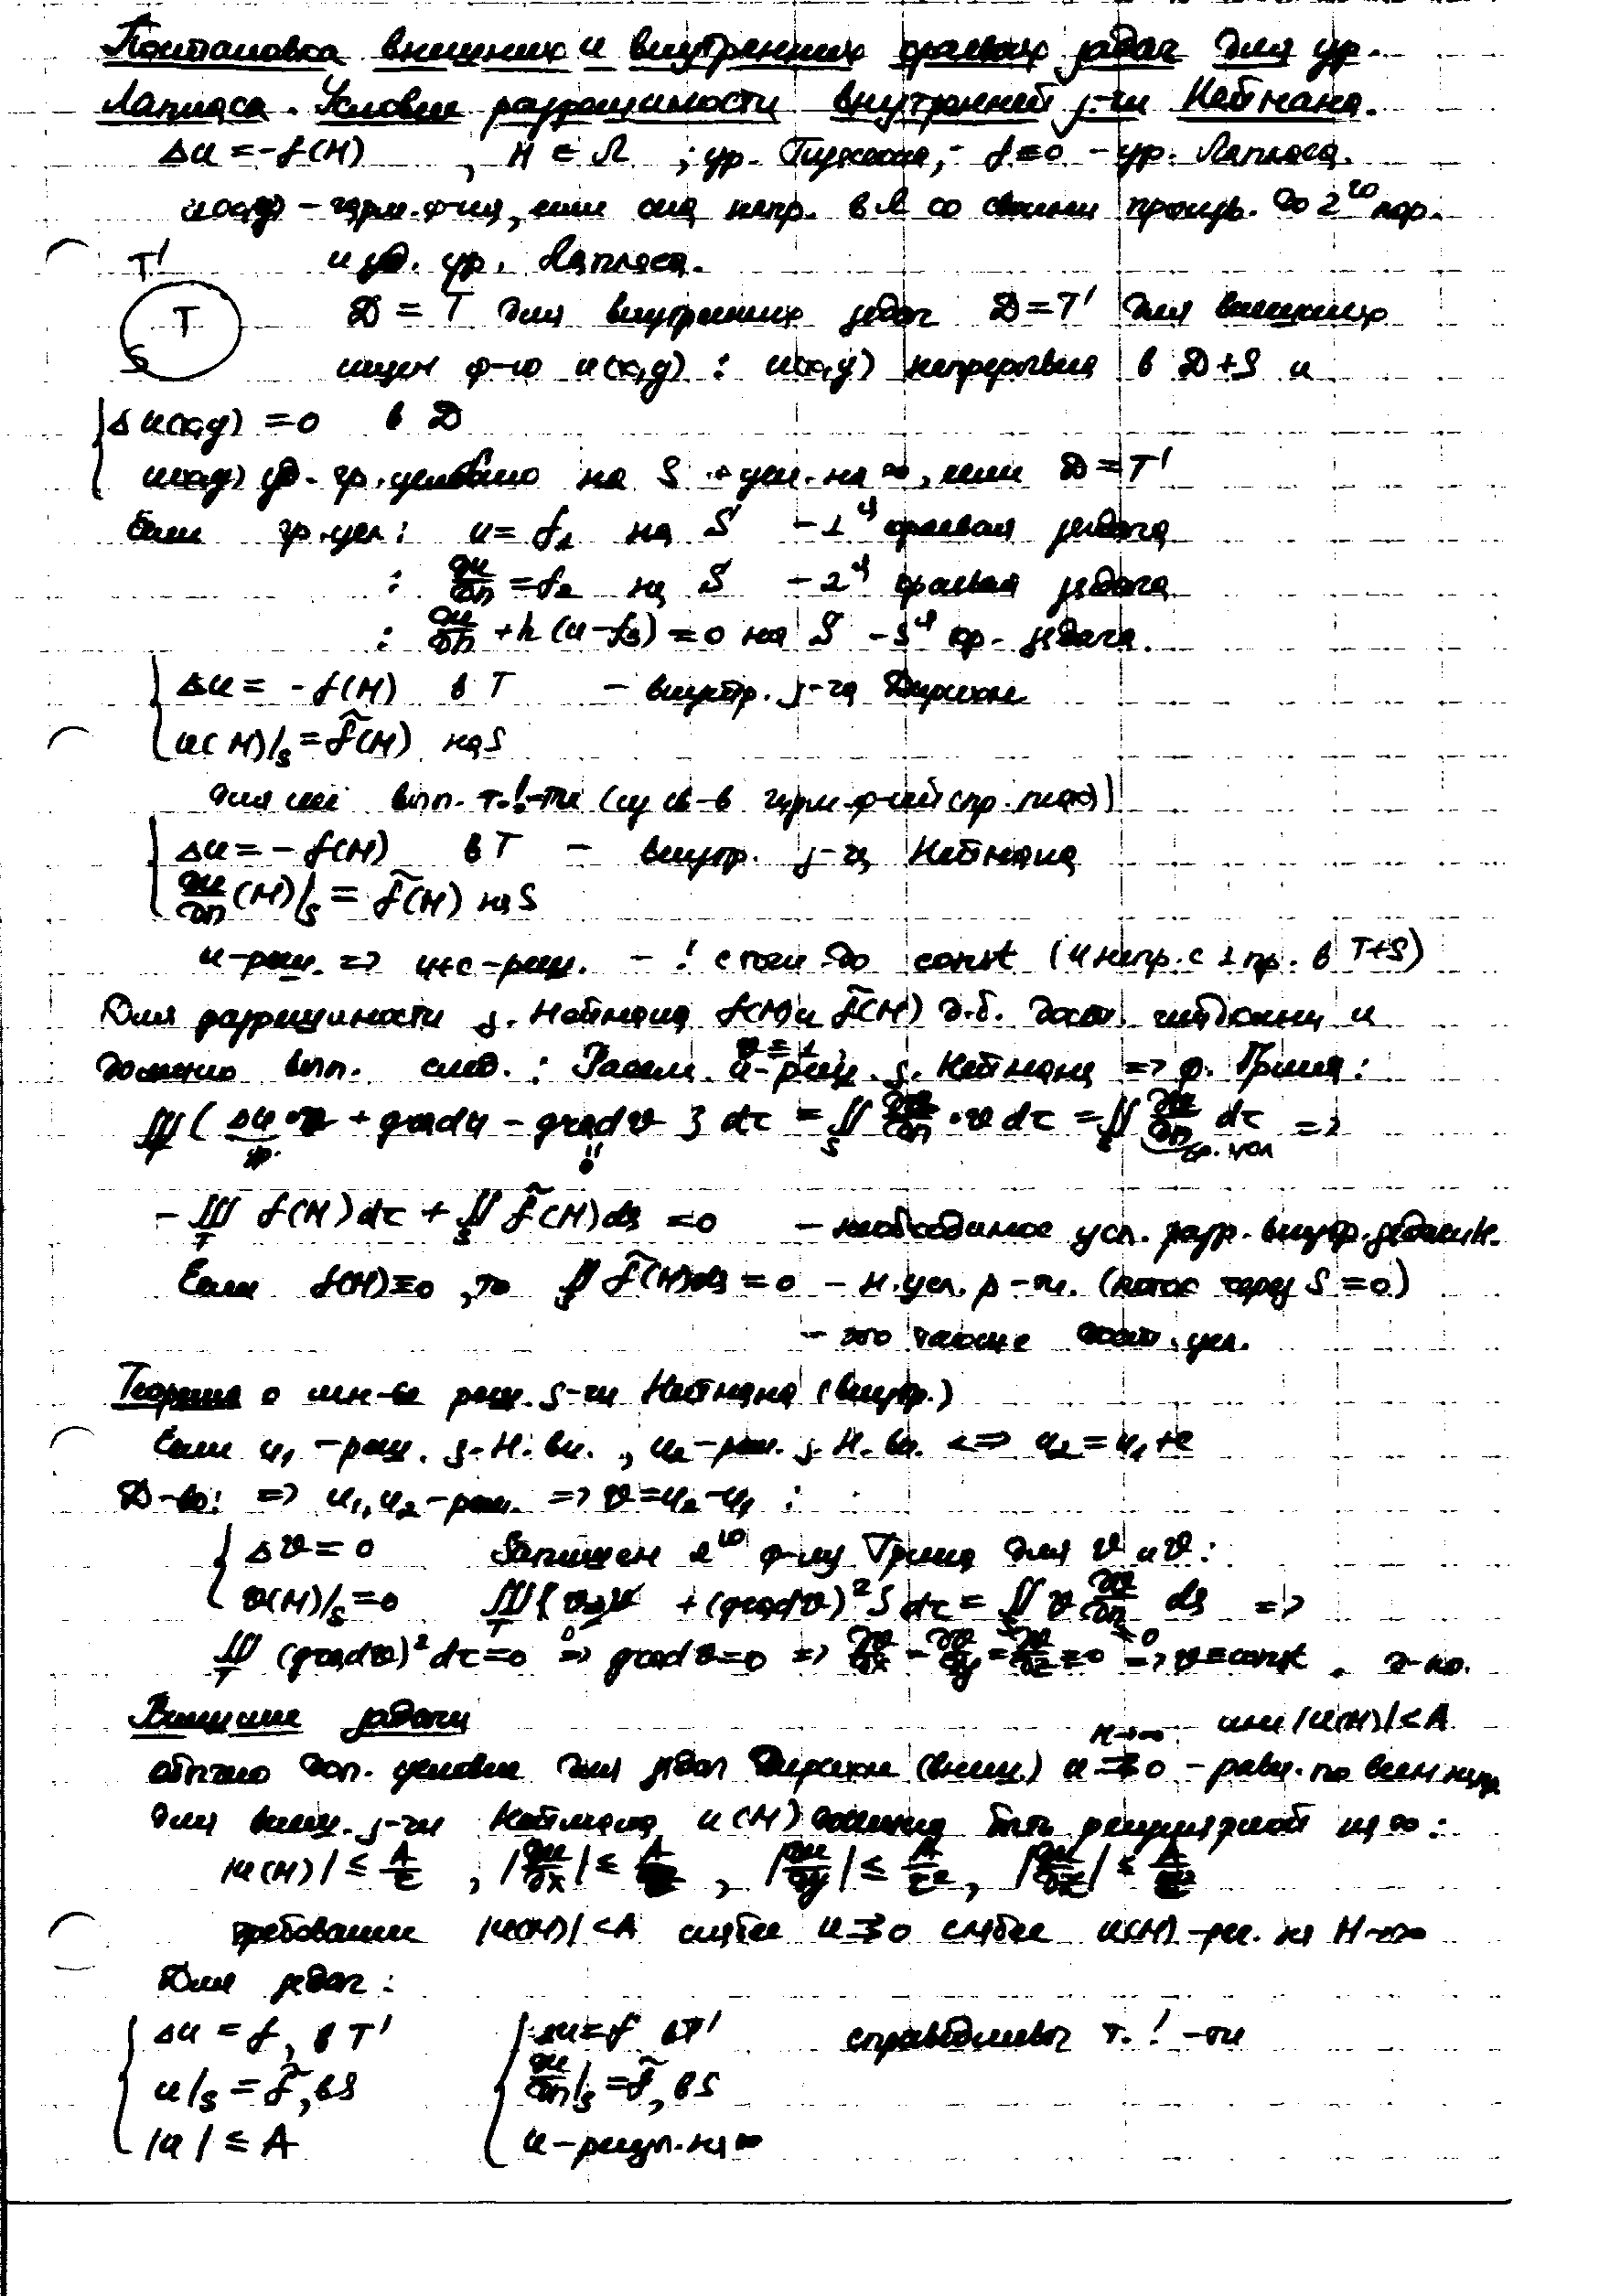 Постановка внешних и внутренних краевых задач для ур.
Лапласа. Условие разрешимости внутренней з-чи Неймана.
Δu = -f(M) , M ∈ Ω ; ур. Пуассона; f=0 - ур. Лапласа.
u(x,y) - гарм. ф-ия, если она непр. в Ω со своими произв. до 2го пор.
и уд. ур. Лапласа.
T'
T
S
D = T для внутренних задач D = T' для внешних
ищем ф-ю u(x,y) : u(x,y) непрерывна в D+S и
Δu(x,y) = 0 в D
u(x,y) уд. гр. условию на S + усл. на ∞, если D = T'
Если гр. усл: u = f₁ на S - 1я краевая задача
: ∂u/∂n = f₂ на S - 2я краевая задача
: ∂u/∂n + h(u-f₃) = 0 на S - 3я кр. задача.
Δu = -f(M) в T - внутр. з-ча Дирихле
u(M)|s = f̃(M) на S
для неё вып. т.!-ти (из св-в гарм. ф-ий (пр. max))
Δu = -f(M) в T - внутр. з-ча Неймана
∂u/∂n (M)|s = f̃(M) на S
u-реш. => u+c-реш. - ! с точн. до const (u непр. с 1 пр. в T+S)
Для разрешимости з. Неймана f(M) и f̃(M) д.б. дост. гладкими и
должно вып. след. : Рассм. u-реш. з. Неймана => ф. Грина:
v ≡ 1
∭{Δu·v + grad u - grad v} dτ = ∬ ∂u/∂n · v dτ = ∬ ∂u/∂n dτ =>
T S S гр. усл
0
- ∭ f(M) dτ + ∬ f̃(M) ds = 0 - необходимое усл. разр. внутр. задачи Н.
Если f(M)≡0, то ∬ f̃(M) ds = 0 - н. усл. р-ти. (поток через S = 0)
- это также дост. усл.
Теорема о мн-ве реш. з-чи Неймана (внутр.)
Если u₁ - реш. з. Н. вн., u₂ - реш. з. Н. вн. <=> u₂ = u₁+c
Д-во: => u₁, u₂ - реш. => v = u₂-u₁ :
Δv = 0 Запишем 1ю ф-лу Грина для v и v:
v(M)|s = 0 ∭{vΔv + (grad v)²} dτ = ∬ v ∂v/∂n ds =>
∭ (grad v)² dτ = 0 => grad v = 0 => ∂v/∂x = ∂v/∂y = ∂v/∂z = 0 => v = const.
Внешние задачи
M→∞ или |u(M)| < A
обычно доп. условие для задач Дирихле (внеш.) u ⇉ 0 - равн. по всем напр.
Для внеш. з-чи Неймана u(M) должна быть регулярной на ∞:
|u(M)| ≤ A/r , |∂u/∂x| ≤ A/r² , |∂u/∂y| ≤ A/r² , |∂u/∂z| ≤ A/r²
требование |u(M)| < A слабее u ⇉ 0 слабее u(M) - рег. на M→∞
Для задач :
Δu = f, в T' Δu = f в T' справедливы т. ! -ти
u|s = f̃, в S ∂u/∂n|s = f̃, в S
|u| ≤ A u - регул. на ∞